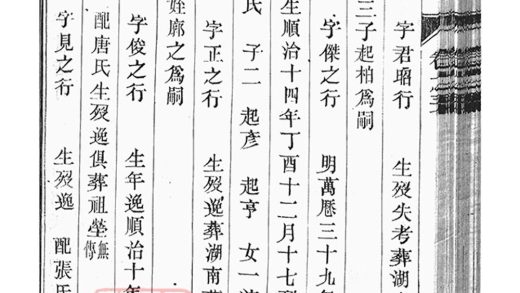 字君昭行 生歿失考葬湖
三子起柏爲嗣
字傑之行 明萬厯三十九年
生順治十四年丁酉十二月十七
氏 子二 起彥 起亨 女一
字正之行 生歿逸葬湖南
姪廓之爲嗣
字俊之行 生年逸順治十年
配唐氏生歿逸俱葬祖塋無傳
字見之行 生歿逸 配張氏